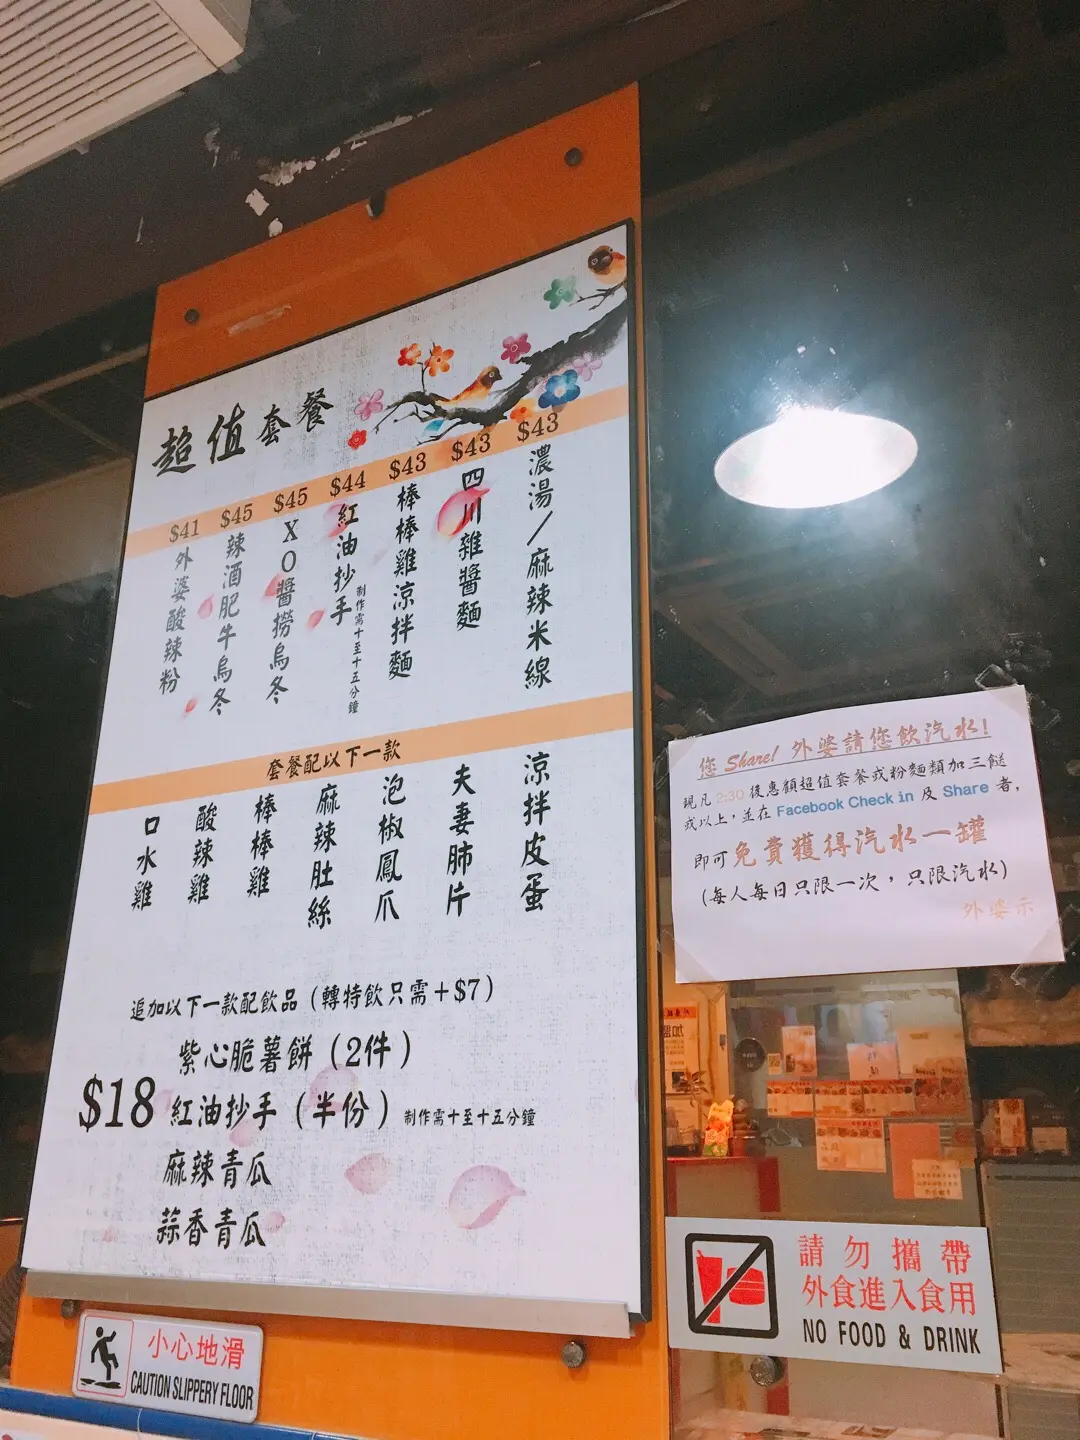 超值套餐
$43
濃湯／麻辣米線
$43
四川雜醬麵
$43
棒棒雞涼拌麵
$44
紅油抄手
制作需十至十五分鐘
$45
XO醬撈烏冬
$45
辣酒肥牛烏冬
$41
外婆酸辣粉
套餐配以下一款
涼拌皮蛋
夫妻肺片
泡椒鳳爪
麻辣肚絲
棒棒雞
酸辣雞
口水雞
追加以下一款配飲品（轉特飲只需＋$7）
$18
紫心脆薯餅（2件）
紅油抄手（半份）制作需十至十五分鐘
麻辣青瓜
蒜香青瓜
小心地滑
CAUTION SLIPPERY FLOOR
您 Share! 外婆請您飲汽水!
現凡 2:30 後惠顧超值套餐或粉麵類加三餸
或以上，並在 Facebook Check in 及 Share 者，
即可免費獲得汽水一罐
(每人每日只限一次，只限汽水)
外婆示
請勿攜帶
外食進入食用
NO FOOD & DRINK